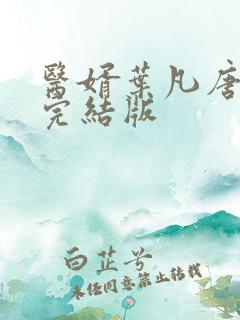 醫婿葉凡唐
完結版
白芷兮
未经同意禁止转载